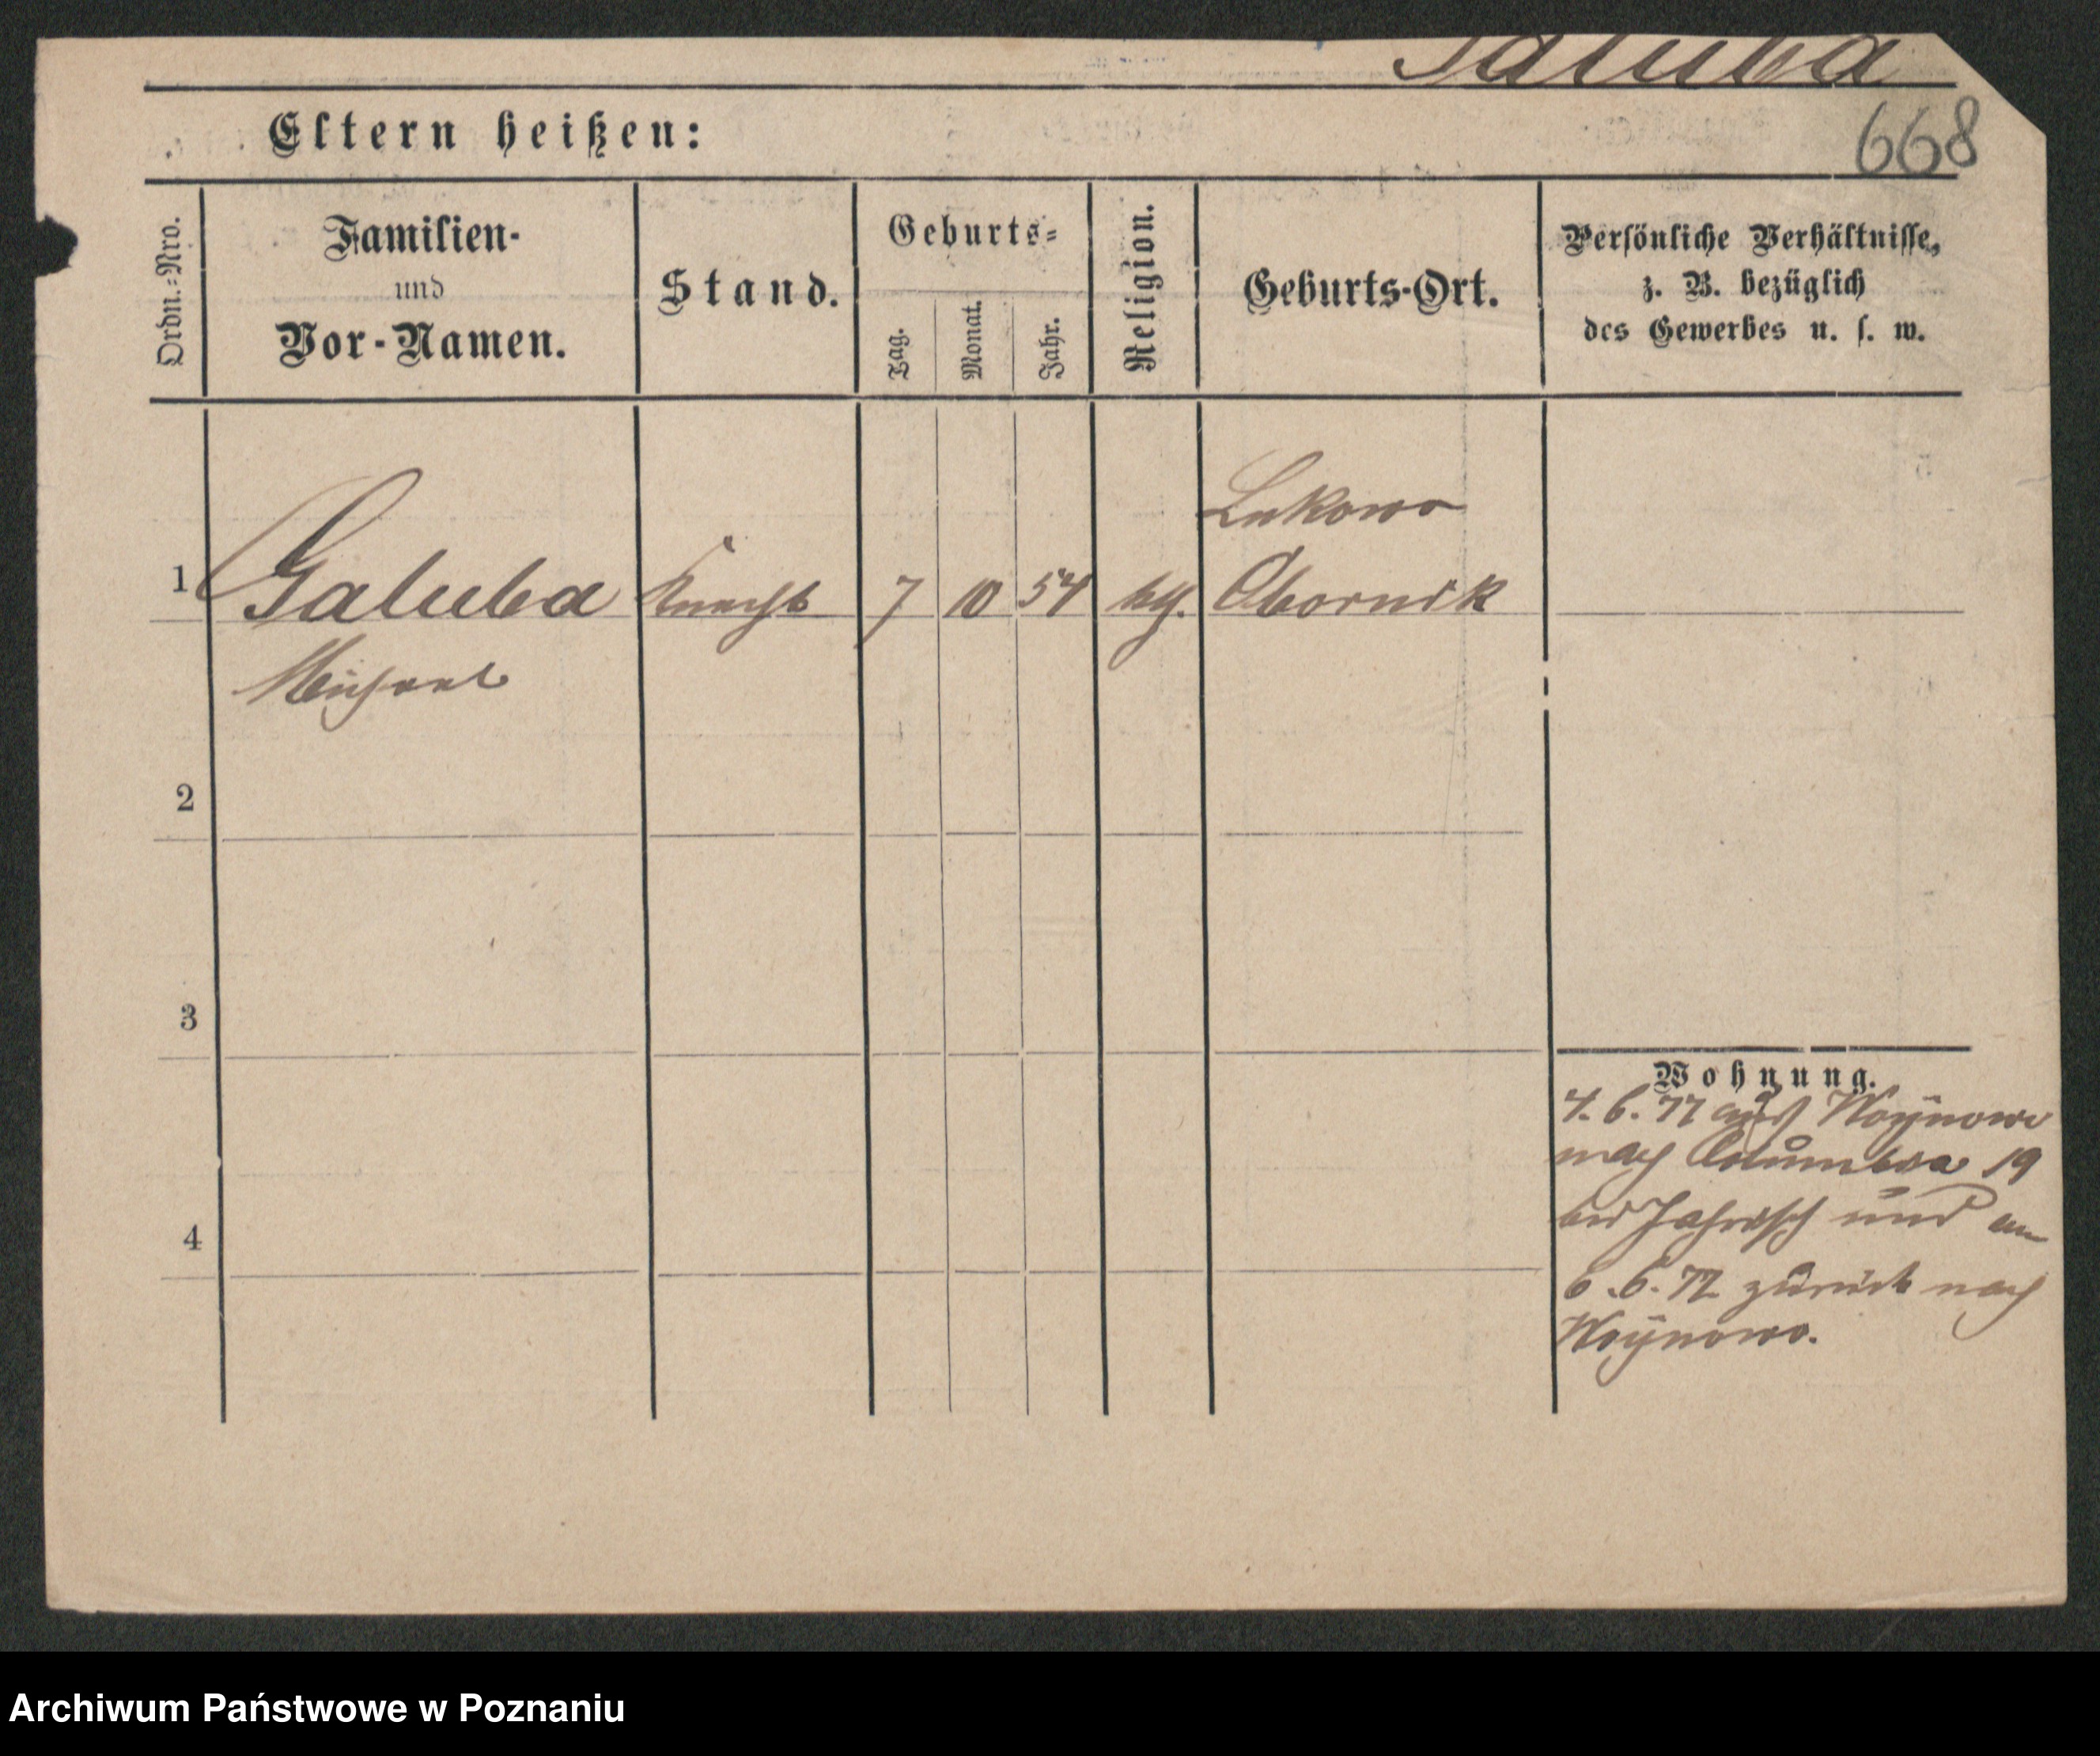 Galuba
668
Eltern heißen:
Ordn.-Nro.
Familien-
und
Vor-Namen.
Stand.
Geburts-
Tag.
Monat.
Jahr.
Religion.
Geburts-Ort.
Persönliche Verhältnisse,
z. B. bezüglich
des Gewerbes u. s. w.
Lukowo
1 Galuba Knecht 7 10 54 kth. Obornik
Michael
2
3
4
Wohnung.
4. 6. 77 aus Woynowo
nach Columbia 19
bei Jahnisch und am
6. 6. 77 zurück nach
Woynowo.
Archiwum Państwowe w Poznaniu